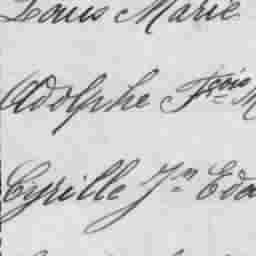 Louis Marie
Adolphe Fçois M
Cyrille Jn Edo